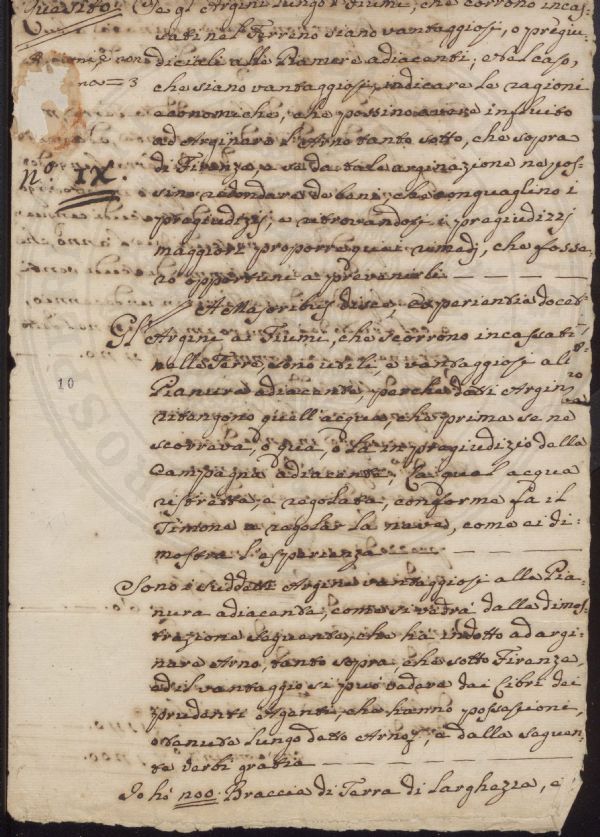 Quesito. Se gl'Argini lungo i Fiumi, che corrono incas-
sati nel Terreno siano vantaggiosi, o pregiu-
diciali alle Pianure adiacenti; e nel caso,
che siano vantaggiosi indicare le ragioni
economiche, che possino avere influito
ad Arginare l'Arno tanto sotto, che sopra
di Firenze, e se da tale arginazione ne pos-
sino ridondare de beni, che agguaglino i
pregiudizj, e ritrovandosi i pregiudizzj
maggiori proporre quai rimedj, che fosse-
ro opportuni a prevenirli
nº. IX.
A Majoribus disce, experientia docet
Gl'Argini ai Fiumi, che scorrono incassati
nelle Terre, sono utili, e vantaggiosi alle
Pianure adiacenti, perche dati Argini
ritengono quell'acqua, che prima se ne
scorreva, o quà, o là in pregiudizio della
Campagna adiacente, la qual'acqua
ristretta, e regolata, conforme fà il
Timone a regolar la nave, come ci di-
mostra l'esperienza
10
Sono i suddetti Argini vantaggiosi alle Pia-
nura adiacente, come si vedrà dalla dimos-
trazione seguente, che hà indotto ad argi-
nare Arno, tanto sopra, che sotto Firenze,
ed il vantaggio si può vedere dai Libri dei
prudenti Agenti, che hanno possessioni,
o tenute lungo detto Arno, e dalla seguen-
te verbi gratia
Io hò 1100: Braccia di Terra di Larghezza, e